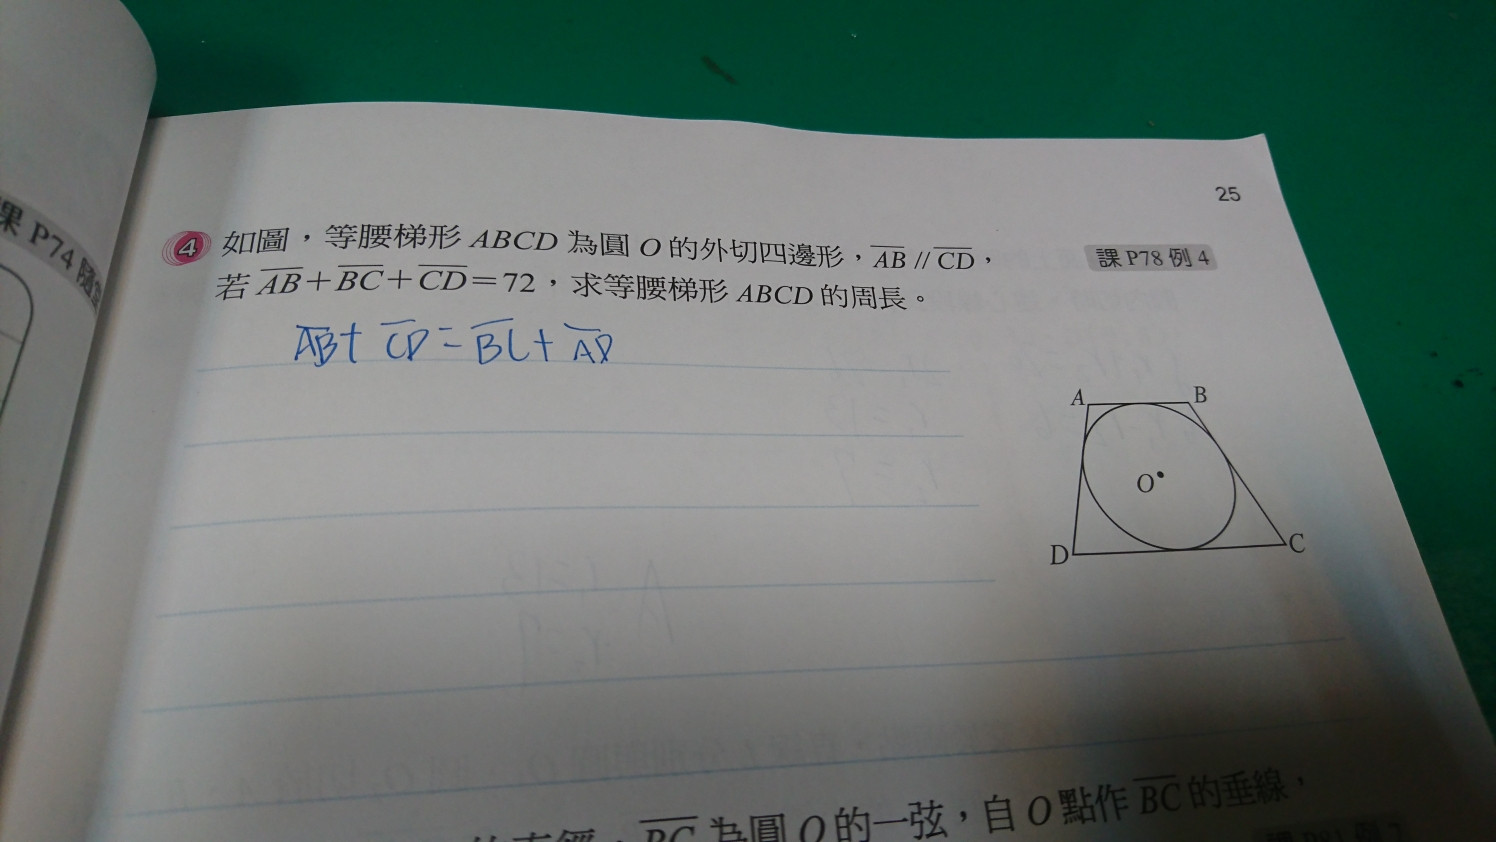 25
課 P74 隨
4 如圖，等腰梯形 ABCD 為圓 O 的外切四邊形，AB // CD，
課 P78 例 4
若 AB＋BC＋CD＝72，求等腰梯形 ABCD 的周長。
AB+ CD = BC+ AD
A
B
O
D
C
BC 為圓 O 的一弦，自 O 點作 BC 的垂線，